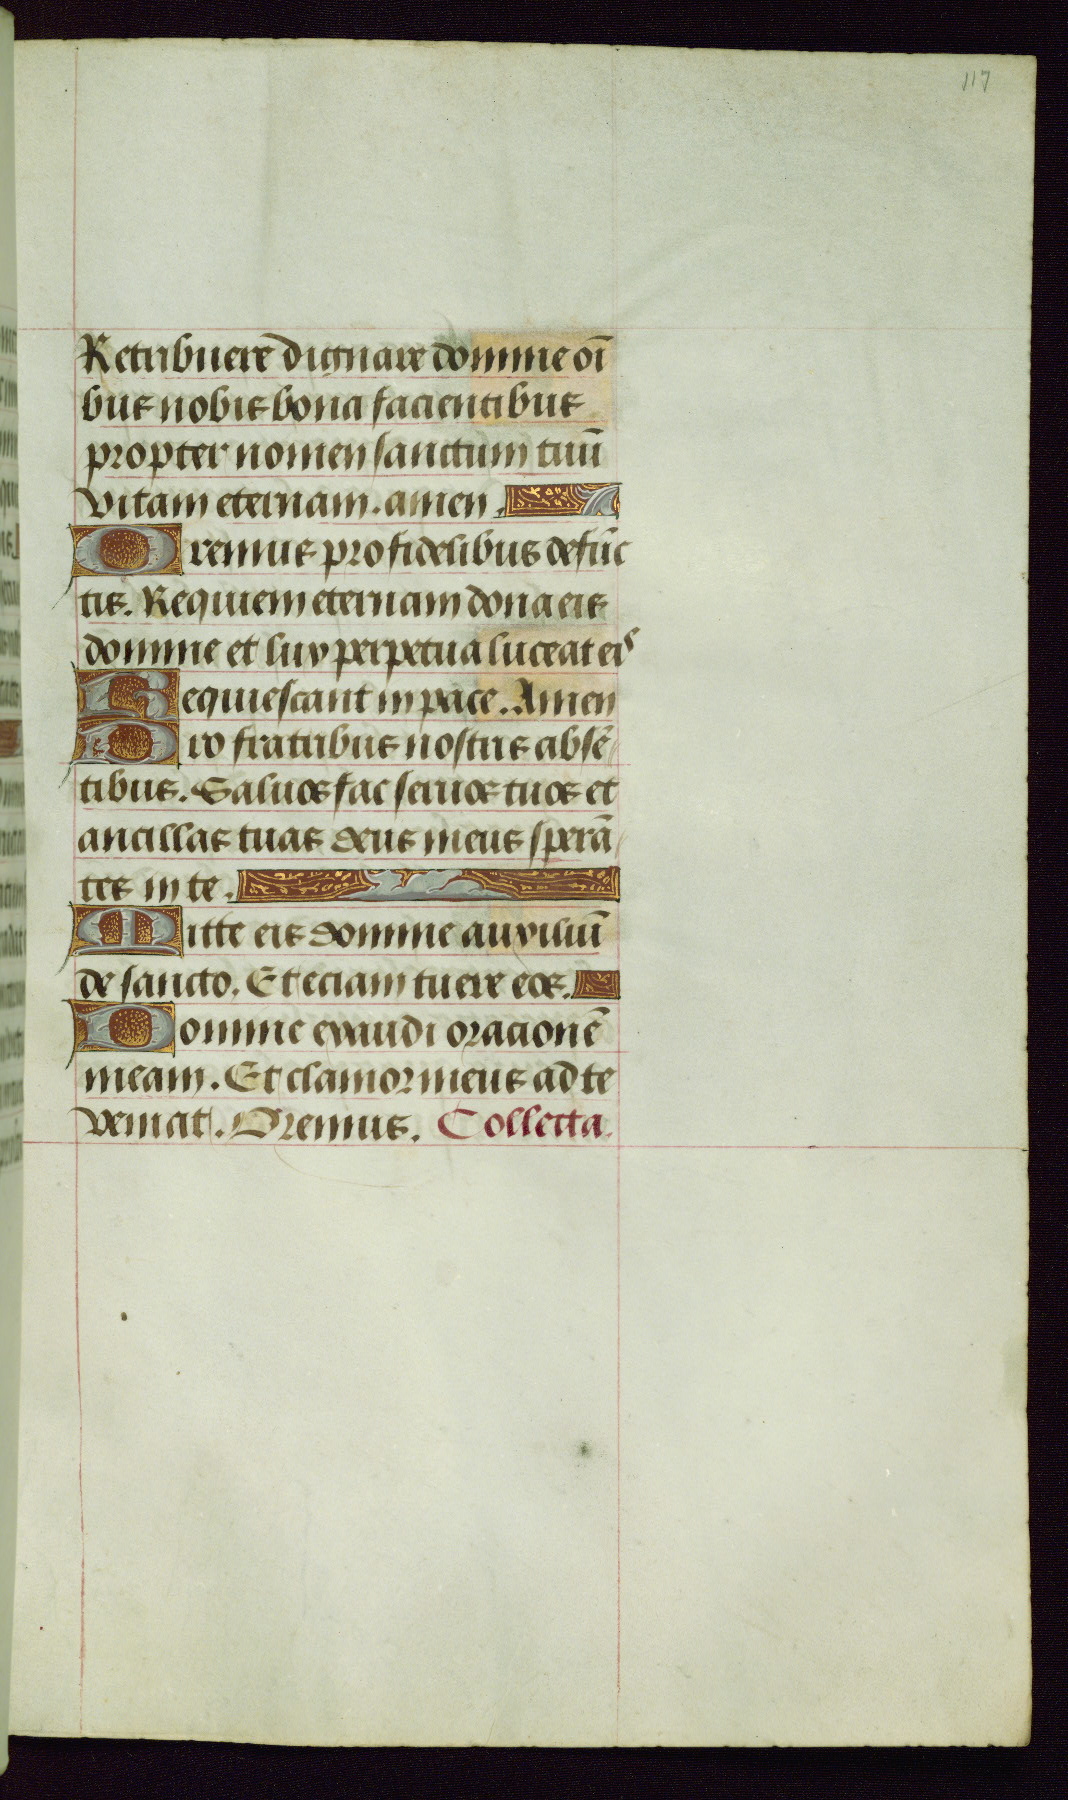 117
Retribuere dignare domine oī
bus nobis bona facientibus
propter nomen sanctum tuū
vitam eternam. amen.
Oremus pro fidelibus defūc
tis. Requiem eternam dona eis
domine et lux perpetua luceat eis
Requiescant in pace. Amen
Pro fratribus nostris absē
tibus. Saluos fac seruos tuos et
ancillas tuas deus meus sperā
tes in te.
Mitte eis domine auxiliū
de sancto. Et eciam tuere eos.
Domine exaudi oracionē
meam. Et clamor meus ad te
veniat. Oremus. Collecta.